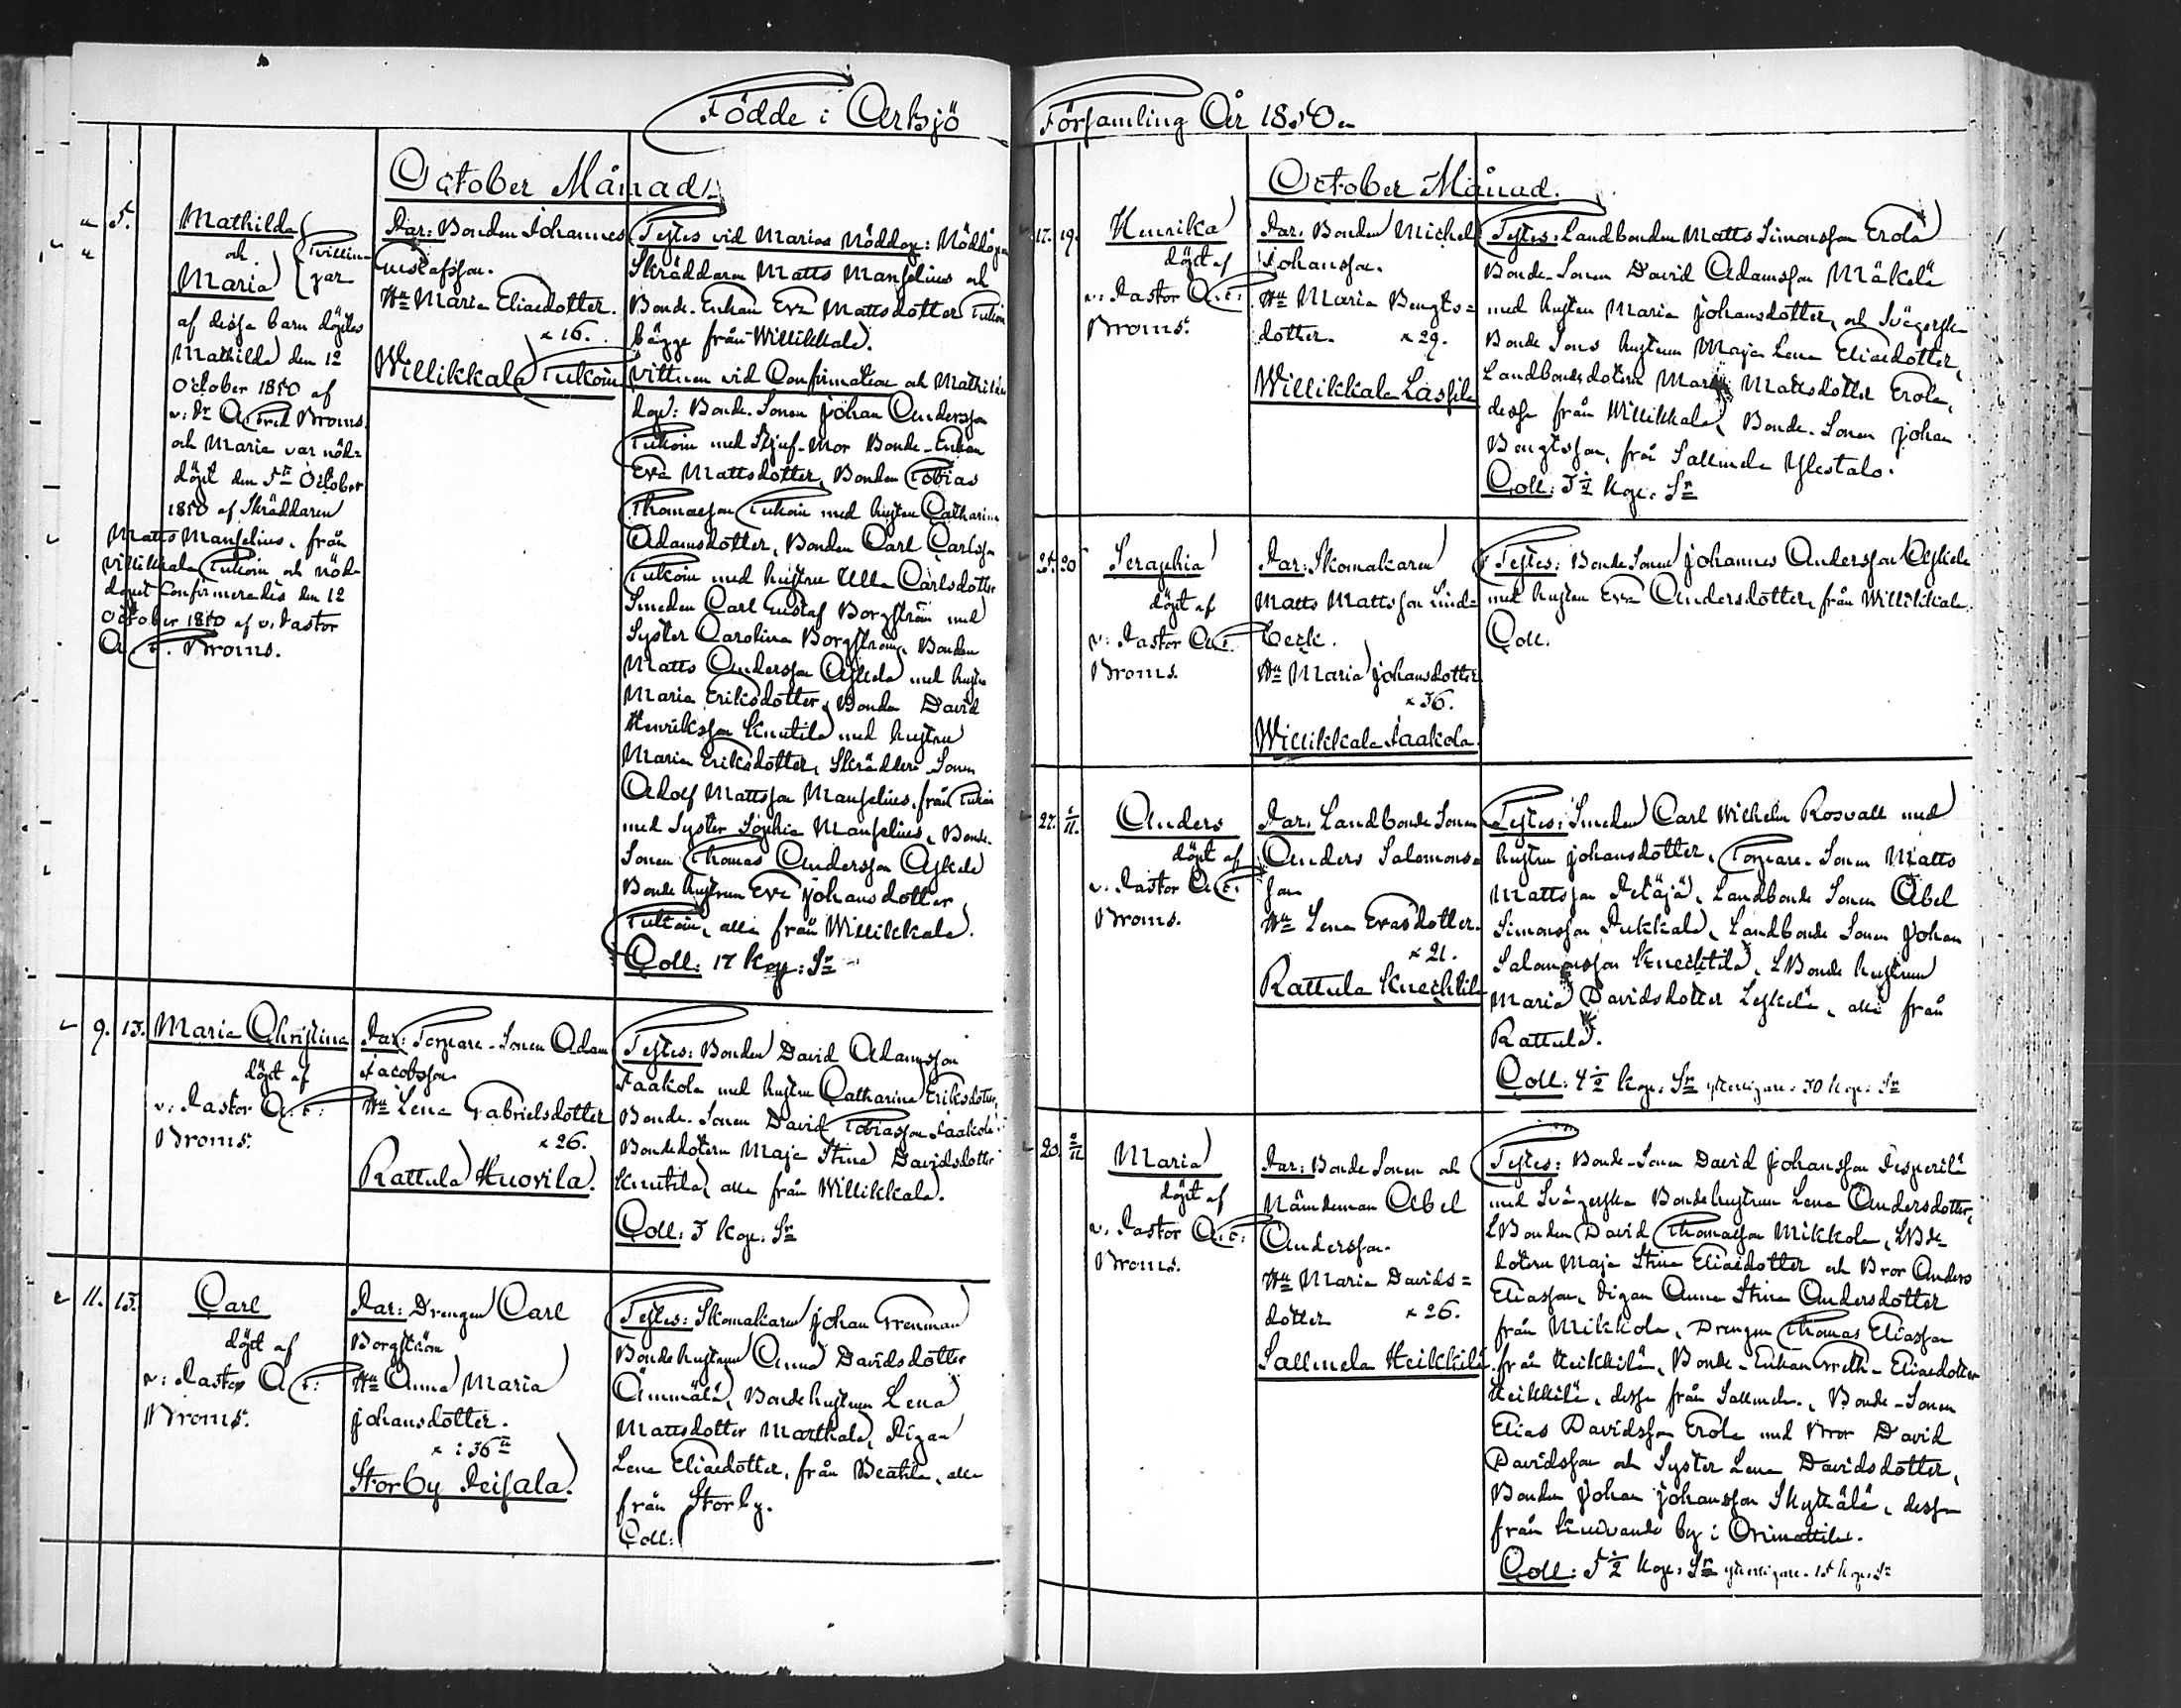 Födde i Artsjö
October Månad.
5.
Mathilda
och
Maria
Tvillin-
gar
af dessa barn döptes
Mathilda den 12
October 1850 af
v: Pr A Fred Broms.
och Maria var nöd=
döpt den 5te October
1850 af Skräddaren
Matts Manselius, från
Willikkala Tukoin och nöd-
dopet Confirmerades den 12
October 1850 af v. Pastor
A. F. Broms.
Par: Bonden Johannes
Gustafsson.
Hu Maria Eliaedotter.
x 16.
Willikkala Tukoin
Testes vid Marias Nöddop: Nöddöpa
Skräddaren Matts Manselius och
Bonde-Enkan Eva Mattsdotter Tukoin
bägge från Willikkala.
Vittnen vid Confirmation och Mathildas
dop: Bonde-Sonen Johan Andersson
Tukoin med Stjuf-Mor Bonde-Enkan
Eva Mattsdotter, Bonden Tobias
Thomasson Tukoin med hustru Catharina
Adamsdotter, Bonden Carl Carlsson
Tukoin med hustru Ulla Carlsdotter
Smeden Carl Gustaf Borgström med
Syster Carolina Borgström, Bonden
Matts Andersson Askela med hustru
Maria Eriksdotter, Bonden David
Henriksson Knutila med hustru
Maria Eriksdotter, Skräddare Sonen
Adolf Mattsson Manselius, från Tukoin
med Syster Sophia Manselius, Bonde-
Sonen Thomas Andersson Askela
Bonde hustrun Eva Johansdotter
Tukoin, alla från Willikkala.
Coll: 17 Kop: Sr
9. 13. Maria Christina
döpt af
v: Pastor A. F:
Broms.
Par: Torpare-Sonen Adam
Jacobsson.
Hu Lena Gabrielsdotter
x 26.
Rattula Huovila.
Testes: Bonden David Adamsson
Jaakola med hustru Catharina Eriksdotter,
Bonde-Sonen David Tobiasson Jaakola
Bondedotern Maja Stina Davidsdotter
Knutila, alla från Willikkala.
Coll: 3 Kop. Sr
11. 13.
Carl
döpt af
v: Pastor A F:
Broms.
Par: Drengen Carl
Borgström
Hu Anna Maria
Johansdotter.
x : 36
Storby Peisala.
Testes: Skomakaren Johan Grenman
Bondehustrun Anna Davidsdotter
Ämmälä, Bondehustrun Lena
Mattsdotter Marttala, Pigan
Lena Eliaedotter, från Beatila, alla
från Storby.
Coll:
Församling År 1850.
October Månad.
17. 19.
Henrika
döpt af
v: Pastor A. F:
Broms.
Par: Bonden Michel
Johansson.
Hu Maria Bengts=
dotter. x 29.
Willikkala Lassila
Testes: Landbonden Matts Simonsson Erola
Bonde-Sonen David Adamsson Mäkelä
med hustru Maria Johansdotter, och Svägerska
Bonde Sons hustrun Maja Lena Eliaedotter,
Landbondedotern Maria Mattsdotter Erola,
dessa från Willikkala, Bonde-Sonen Johan
Bengtsson, från Sallmela Ylestalo.
Coll: 3½ Kop: Sr
20
Seraphia
döpt af
v: Pastor A. F.
Broms.
Par: Skomakaren
Matts Mattsson Lind=
beck.
Hu Maria Johansdotter
x 36.
Willikkala Jaakola.
Testes: Bonde Sonen Johannes Andersson Askela
med hustru Eva Andersdotter, från Willikkala.
Coll.
27. 1/11.
Anders
döpt af
v: Pastor A. F:
Broms.
Par: Landbonde Sonen
Anders Salomons=
son
Hu Lena Evasdotter.
x 21.
Rattula Knechtila
Testes: Smeden Carl Wilhelm Rosvall med
hustru Johansdotter, Torpare-Sonen Matts
Mattsson Petäjä, Landbonde Sonen Abel
Simonsson Pukkala, Landbonde Sonen Johan
Salomonsson Knechtila, LBonde hustrun
Maria Davidsdotter Leskelä, alla från
Rattula.
Coll: 4½ Kop: Sr ytterligare: 30 Kop: Sr
20. 2/11
Maria
döpt af
v: Pastor A. F:
Broms.
Par: Bonde Sonen och
Nämdeman Abel
Andersson.
Hu Maria Davids=
dotter x 26.
Sallmela Heikkilä.
Testes: Bonde-Sonen David Johansson
med Svägerska Bondehustrun Lena Andersdotter,
LBonden David Thomasson Mikkola, LBde-
dotern Maja Stina Eliaedotter och Bror Anders
Eliasson, Pigan Anna Stina Andersdotter
från Mikkola, Drengen Thomas Eliasson
från Heikkilä, Bonde-Enkan Greth. Eliaedotter
Heikkilä, dessa från Sallmela, Bonde-Sonen
Elias Davidsson Erola med Bror David
Davidsson och Syster Lena Davidsdotter,
Bonden Johan Johansson Skyttälä, dessa
från by i Orimattila.
Coll: 5½ Kop: Sr ytterligare. 15 Kop. Sr